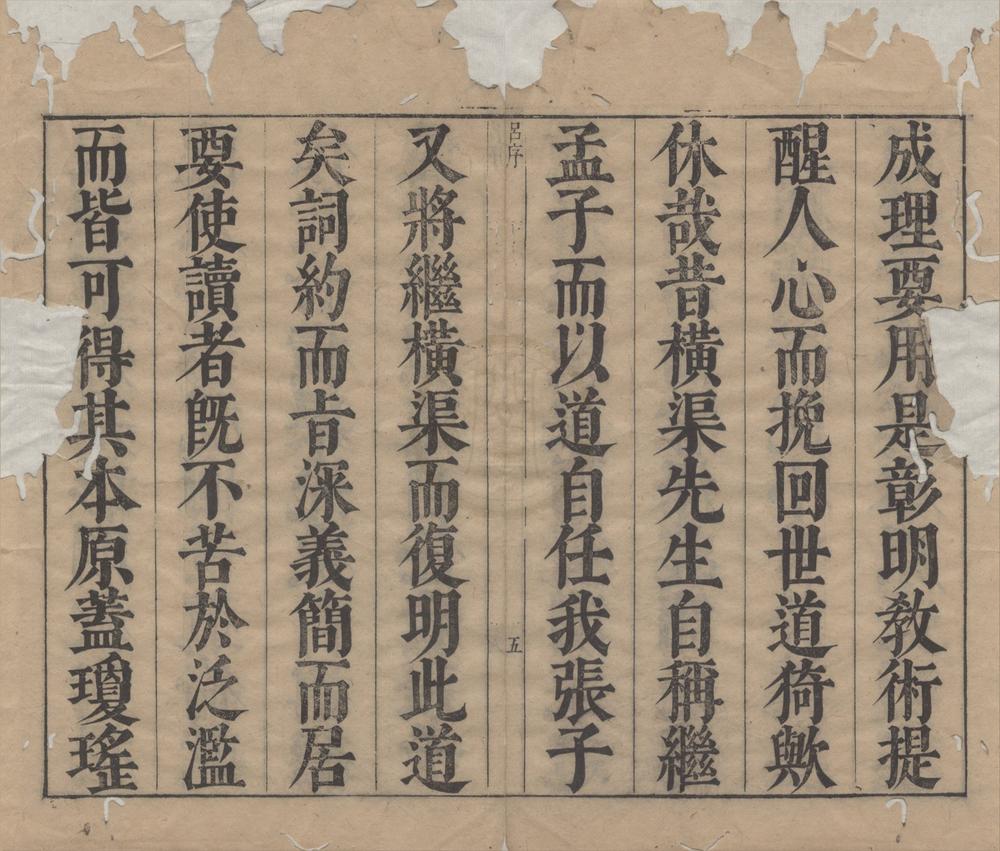 成理要用是彰明教術提
醒人心而挽回世道猗歟
休哉昔橫渠先生自稱繼
孟子而以道自任我張子
呂序
五
又將繼橫渠而復明此道
矣詞約而旨深義簡而居
要使讀者既不苦於泛濫
而皆可得其本原蓋瓊瑤